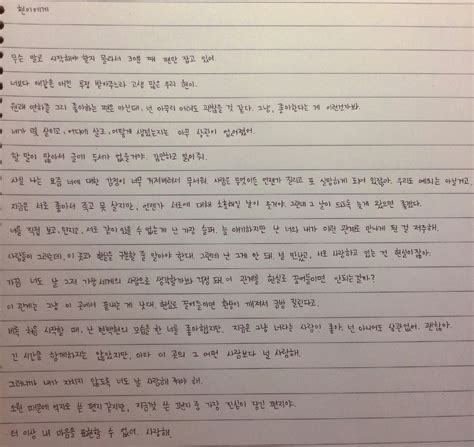 현이에게
무슨 말로 시작해야 할지 몰라서 30분 째 펜만 잡고 있어.
너보다 애같은 애인 투정 받아주느라 고생 많은 우리 현이.
원래 연하를 그리 좋아하는 편은 아닌데, 넌 아무리 어려도 괜찮을 것 같다. 그냥, 좋아한다는 게 이런건가봐.
네가 몇 살이고, 어디에 살고, 어떻게 생겼는지는 아무 상관이 없어졌어.
할 말이 많아서 글에 두서가 없을거야. 감안하고 읽어줘.
사실 나는 요즘 너에 대한 감정이 너무 커져버려서 무서워. 사람은 무엇이든 언젠가 질리고 또 실망하게 되어 있잖아. 우리도 예외는 아닐거고
지금은 서로 좋아서 죽고 못 살지만, 언젠가 서로에 대해 소홀해질 날이 올거야. 그런데 그 날이 되도록 늦게 왔으면 좋겠다.
너를 직접 보고, 만지고, 서로 같이 있을 수 없는게 난 가장 슬퍼. 늘 얘기하지만 난 너와 내가 이런 관계로 만나게 될 걸 저주해.
사람들이 그러는데, 이 곳과 현실을 구분할 줄 알아야 한대. 그런데 난 그게 안 돼. 널 만났고, 서로 사랑하고 있는 건 현실이잖아.
가끔 너도 날 그저 가상 세계의 사람으로 생각할까봐 걱정 돼. 이 관계를 현실로 끌어들이면 안되는걸까?
이 관계는 그냥 이 곳에서 끝내는 게 낫대. 현실로 끌어들이면 환상이 깨져서 금방 질린다고.
비록 처음 시작할 때, 난 변백현의 모습을 한 너를 좋아했지만, 지금은 그냥 너라는 사람이 좋아. 넌 아니어도 상관없어. 괜찮아.
긴 시간을 함께하지는 않았지만, 아마 이 곳의 그 어떤 사람보다 널 사랑해.
그러니까 내가 지치지 않도록 너도 날 사랑해 줘야 해.
소원 때문에 억지로 쓴 편지 같지만, 지금껏 쓴 편지 중 가장 진심이 담긴 편지야.
더 이상 내 마음을 표현할 수 없어. 사랑해.